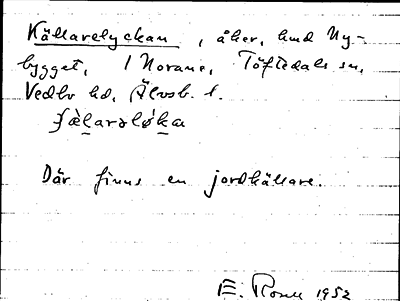 Källarelyckan, åker, hmd Ny-
bygget, 1 Norane, Töftedals sn,
Vedbo hd, Älvsb. l.
Där finns en jordkällare.
E. 1952